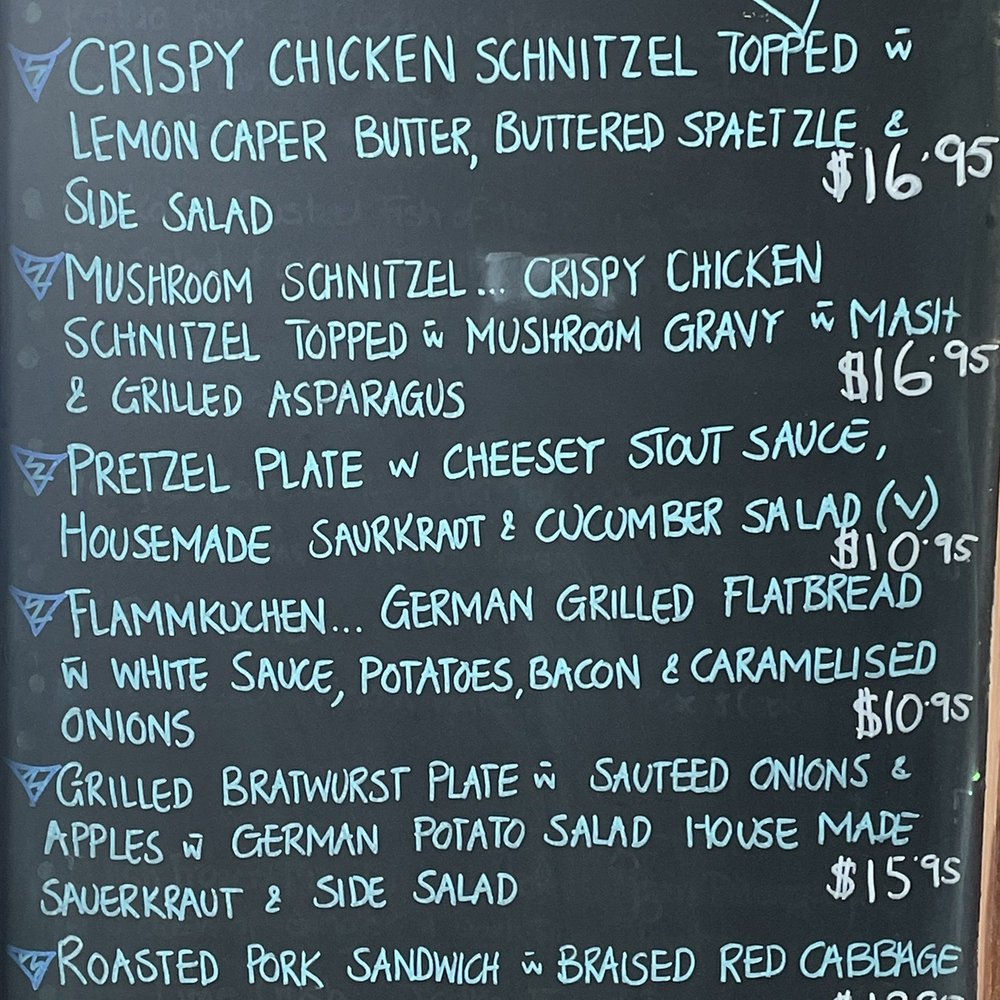 CRISPY CHICKEN SCHNITZEL TOPPED w̄
LEMON CAPER BUTTER, BUTTERED SPAETZLE &
$16.95
SIDE SALAD
MUSHROOM SCHNITZEL... CRISPY CHICKEN
SCHNITZEL TOPPED w̄ MUSHROOM GRAVY w̄ MASH
$16.95
& GRILLED ASPARAGUS
PRETZEL PLATE w CHEESEY STOUT SAUCE,
HOUSEMADE SAURKRAUT & CUCUMBER SALAD (V)
$10.95
FLAMMKUCHEN... GERMAN GRILLED FLATBREAD
w̄ WHITE SAUCE, POTATOES, BACON & CARAMELISED
ONIONS $10.95
GRILLED BRATWURST PLATE w̄ SAUTEED ONIONS &
APPLES w̄ GERMAN POTATO SALAD HOUSE MADE
SAUERKRAUT & SIDE SALAD $15.95
ROASTED PORK SANDWICH w̄ BRAISED RED CABBAGE